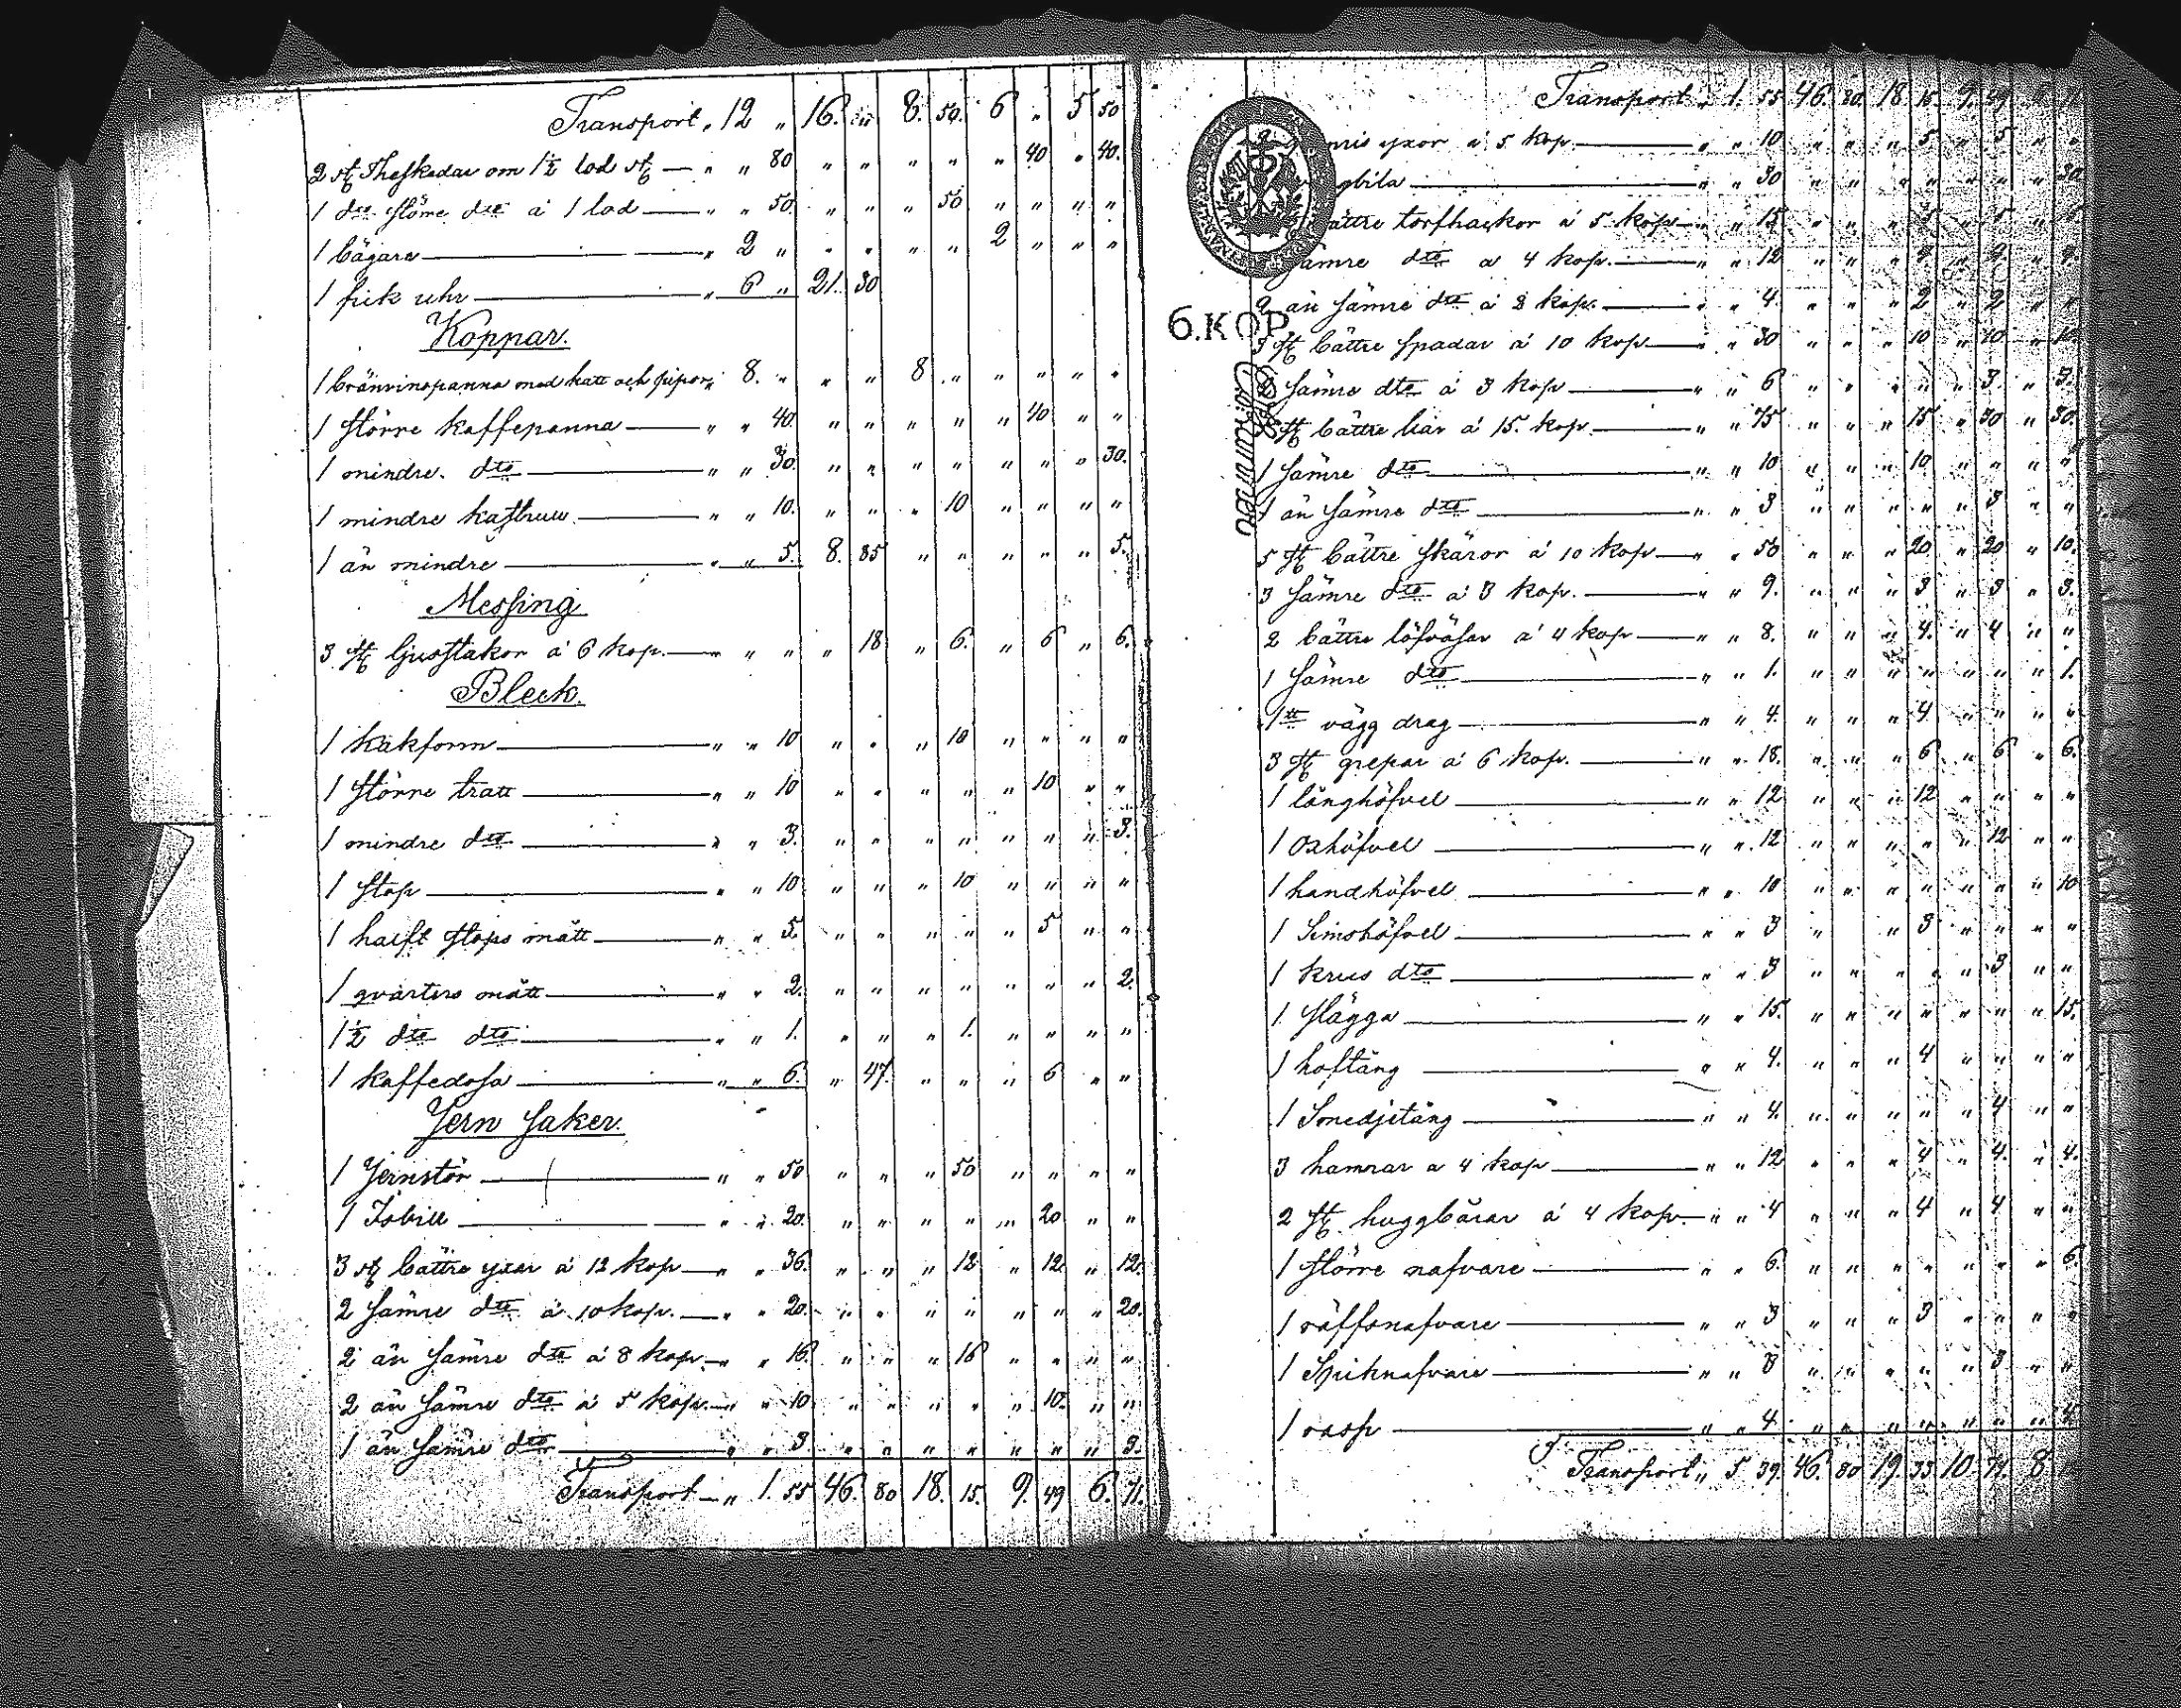 Transport „ 12 „ 16. „ 8. 50. 6 „ 5 50
2 st Theskedar om 1½ lod st — „ „ 80 „ „ „ „ „ 40 „ 40.
1 dto större dto á 1 lod — „ „ 50 „ „ „ 50 „ „ „ „
1 bägare — „ 2 „ „ „ „ „ 2 „ „ „
1 fick uhr — „ 6 „ 21. 30
Koppar.
1 bränvinspanna med hatt och pipor „ 8. „ „ „ 8 „ „ „ „ „
1 större kaffepanna — „ „ 40. „ „ „ „ „ 40 „ „
1 mindre dto — „ „ 30. „ „ „ „ „ „ „ 30.
1 mindre kastrull — „ „ 10. „ „ „ 10 „ „ „ „
1 än mindre — „ „ 5. 8. 85 „ „ „ „ „ 5.
Messing
3 st ljusstakor á 6 kop. — „ „ „ „ 18 „ 6. „ 6 „ 6.
Bleck.
1 kakform — „ „ 10 „ „ „ 10 „ „ „ „
1 större tratt — „ „ 10 „ „ „ „ „ 10 „ „
1 mindre dto — „ „ 3. „ „ „ „ „ „ „ 3.
1 stop — „ „ 10 „ „ „ 10 „ „ „ „
1 halft stops mått — „ „ 5. „ „ „ „ „ 5 „ „
1 qvarters mått — „ „ 2. „ „ „ „ „ „ „ 2.
1½ dto dto — „ „ 1. „ „ „ 1. „ „ „ „
1 kaffedosa — „ „ 6. „ 47. „ „ „ 6 „ „
Jern saker.
1 Jernstör — „ „ 50 „ „ „ 50 „ „ „ „
1 Isbill — „ „ 20. „ „ „ „ „ 20 „ „
3 st bättre yxar á 12 kop — „ „ 36. „ „ „ 12 „ 12 „ 12.
2 sämre dto á 10 kop. — „ „ 20. „ „ „ „ „ „ „ 20.
2 än sämre dto á 8 kop. — „ „ 16. „ „ „ 16 „ „ „ „
2 än sämre dto á 5 kop. — „ „ 10 „ „ „ „ „ 10. „ „
1 än sämre dto — „ „ 3. „ „ „ „ „ „ „ 3.
Transport — „ 1. 55 46. 80 18. 15. 9. 49 6. 71.
Transport „ 1. 55 46. 80. 18 15. 9. 49
yxor á 5 kop. — „ „ 10 „ „ „ 5 „ 5 „ „
bila — „ „ 30 „ „ „ „ „ „ „ 30
bättre torfhackor á 5 kop — „ „ 15 „ „ „ 5 „ 5 „ 5
sämre dto a 4 kop. — „ „ 12 „ „ „
2 än sämre dto á 2 kop. — „ „ 4. „ „ „ 2 „ 2 „ „
6.KOP.
3 st bättre spadar á 10 kop — „ „ 30 „ „ „ 10 „ 10 „ 10.
2 sämre dto á 3 kop — „ „ 6 „ „ „ „ „ 3. „ 3.
5 st bättre liar á 15. kop. — „ „ 75 „ „ „ 15 „ 30 „ 30.
1 sämre dto — „ „ 10 „ „ „ 10. „ „ „ „
1 än sämre dto — „ „ 3 „ „ „ „ „ 3 „ „
5 st bättre skäror á 10 kop — „ „ 50 „ „ „ 20 „ 20 „ 10.
3 sämre dto á 3 kop. — „ „ 9. „ „ „ 3 „ 3 „ 3.
2 bättre löfräfsar á 4 kop — „ „ 8. „ „ „ 4. „ 4 „ „
1 sämre dto — „ „ 1. „ „ „ „ „ „ „ 1.
1 vägg drag — „ „ 4. „ „ „ 4 „ „ „ „
3 st grepar á 6 kop. — „ „ 18. „ „ „ 6 „ 6 „ 6.
1 långhöfvel — „ „ 12 „ „ „ 12 „ „ „ „
1 Oxhöfvel — „ „ 12 „ „ „ „ „ 12 „ „
1 handhöfvel — „ „ 10 „ „ „ „ „ „ „ 10
1 Simshöfvel — „ „ 3 „ „ 3 „ „ „ „
1 krus dto — „ „ 3 „ „ „ „ „ 3 „ „
1 slägga — „ „ 15. „ „ „ „ „ „ „ 15.
1 hoftång — „ „ 4. „ „ „ 4 „ „ „ „
1 Smedjetång — „ „ 4. „ „ „ „ „ 4 „ „
3 hamrar a 4 kop — „ „ 12 „ „ „ 4 „ 4. „ 4.
2 st huggbårar á 4 kop. — „ „ 4 „ „ „ 4 „ 4 „ „
1 större nafvare — „ „ 6. „ „ „ „ „ „ „ 6.
1 räffsnafvare — „ „ 3 „ „ „ 3 „ „ „ „
1 Spiknafvare — „ „ 3 „ „ „ „ „ 3 „ „
1 rasp — „ „ 4. „ „ „ „ „ „ „ 4
Transport „ 5 39. 46. 80 19. 33 10. 74. 8